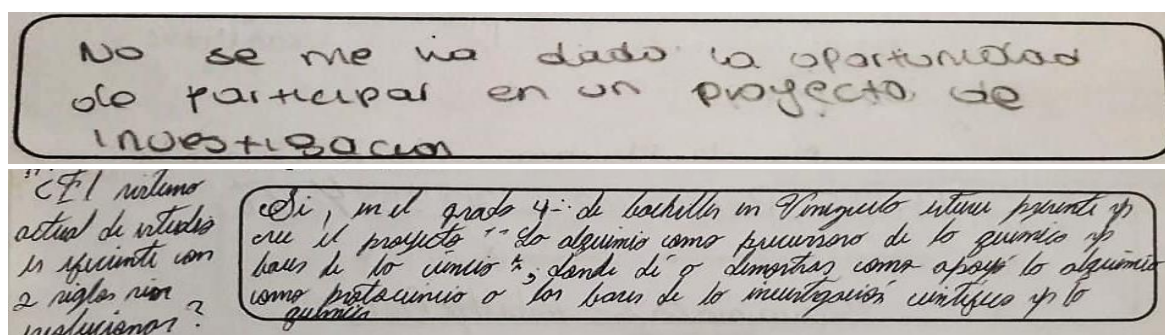 No se me ha dado la oportunidad
de participar en un proyecto de
investigacion
"¿El sistema
actual de estudio
es eficiente con
2 siglos sin
evolucionar?
Si, en el grado 4- de bachiller en Venezuela estuve presente y
cree el proyecto "La alquimia como precursora de la quimica y
bases de la ciencia", donde dí a demostrar como apoyó la alquimia
como protociencia a las bases de la investigación cientifica y la
quimica